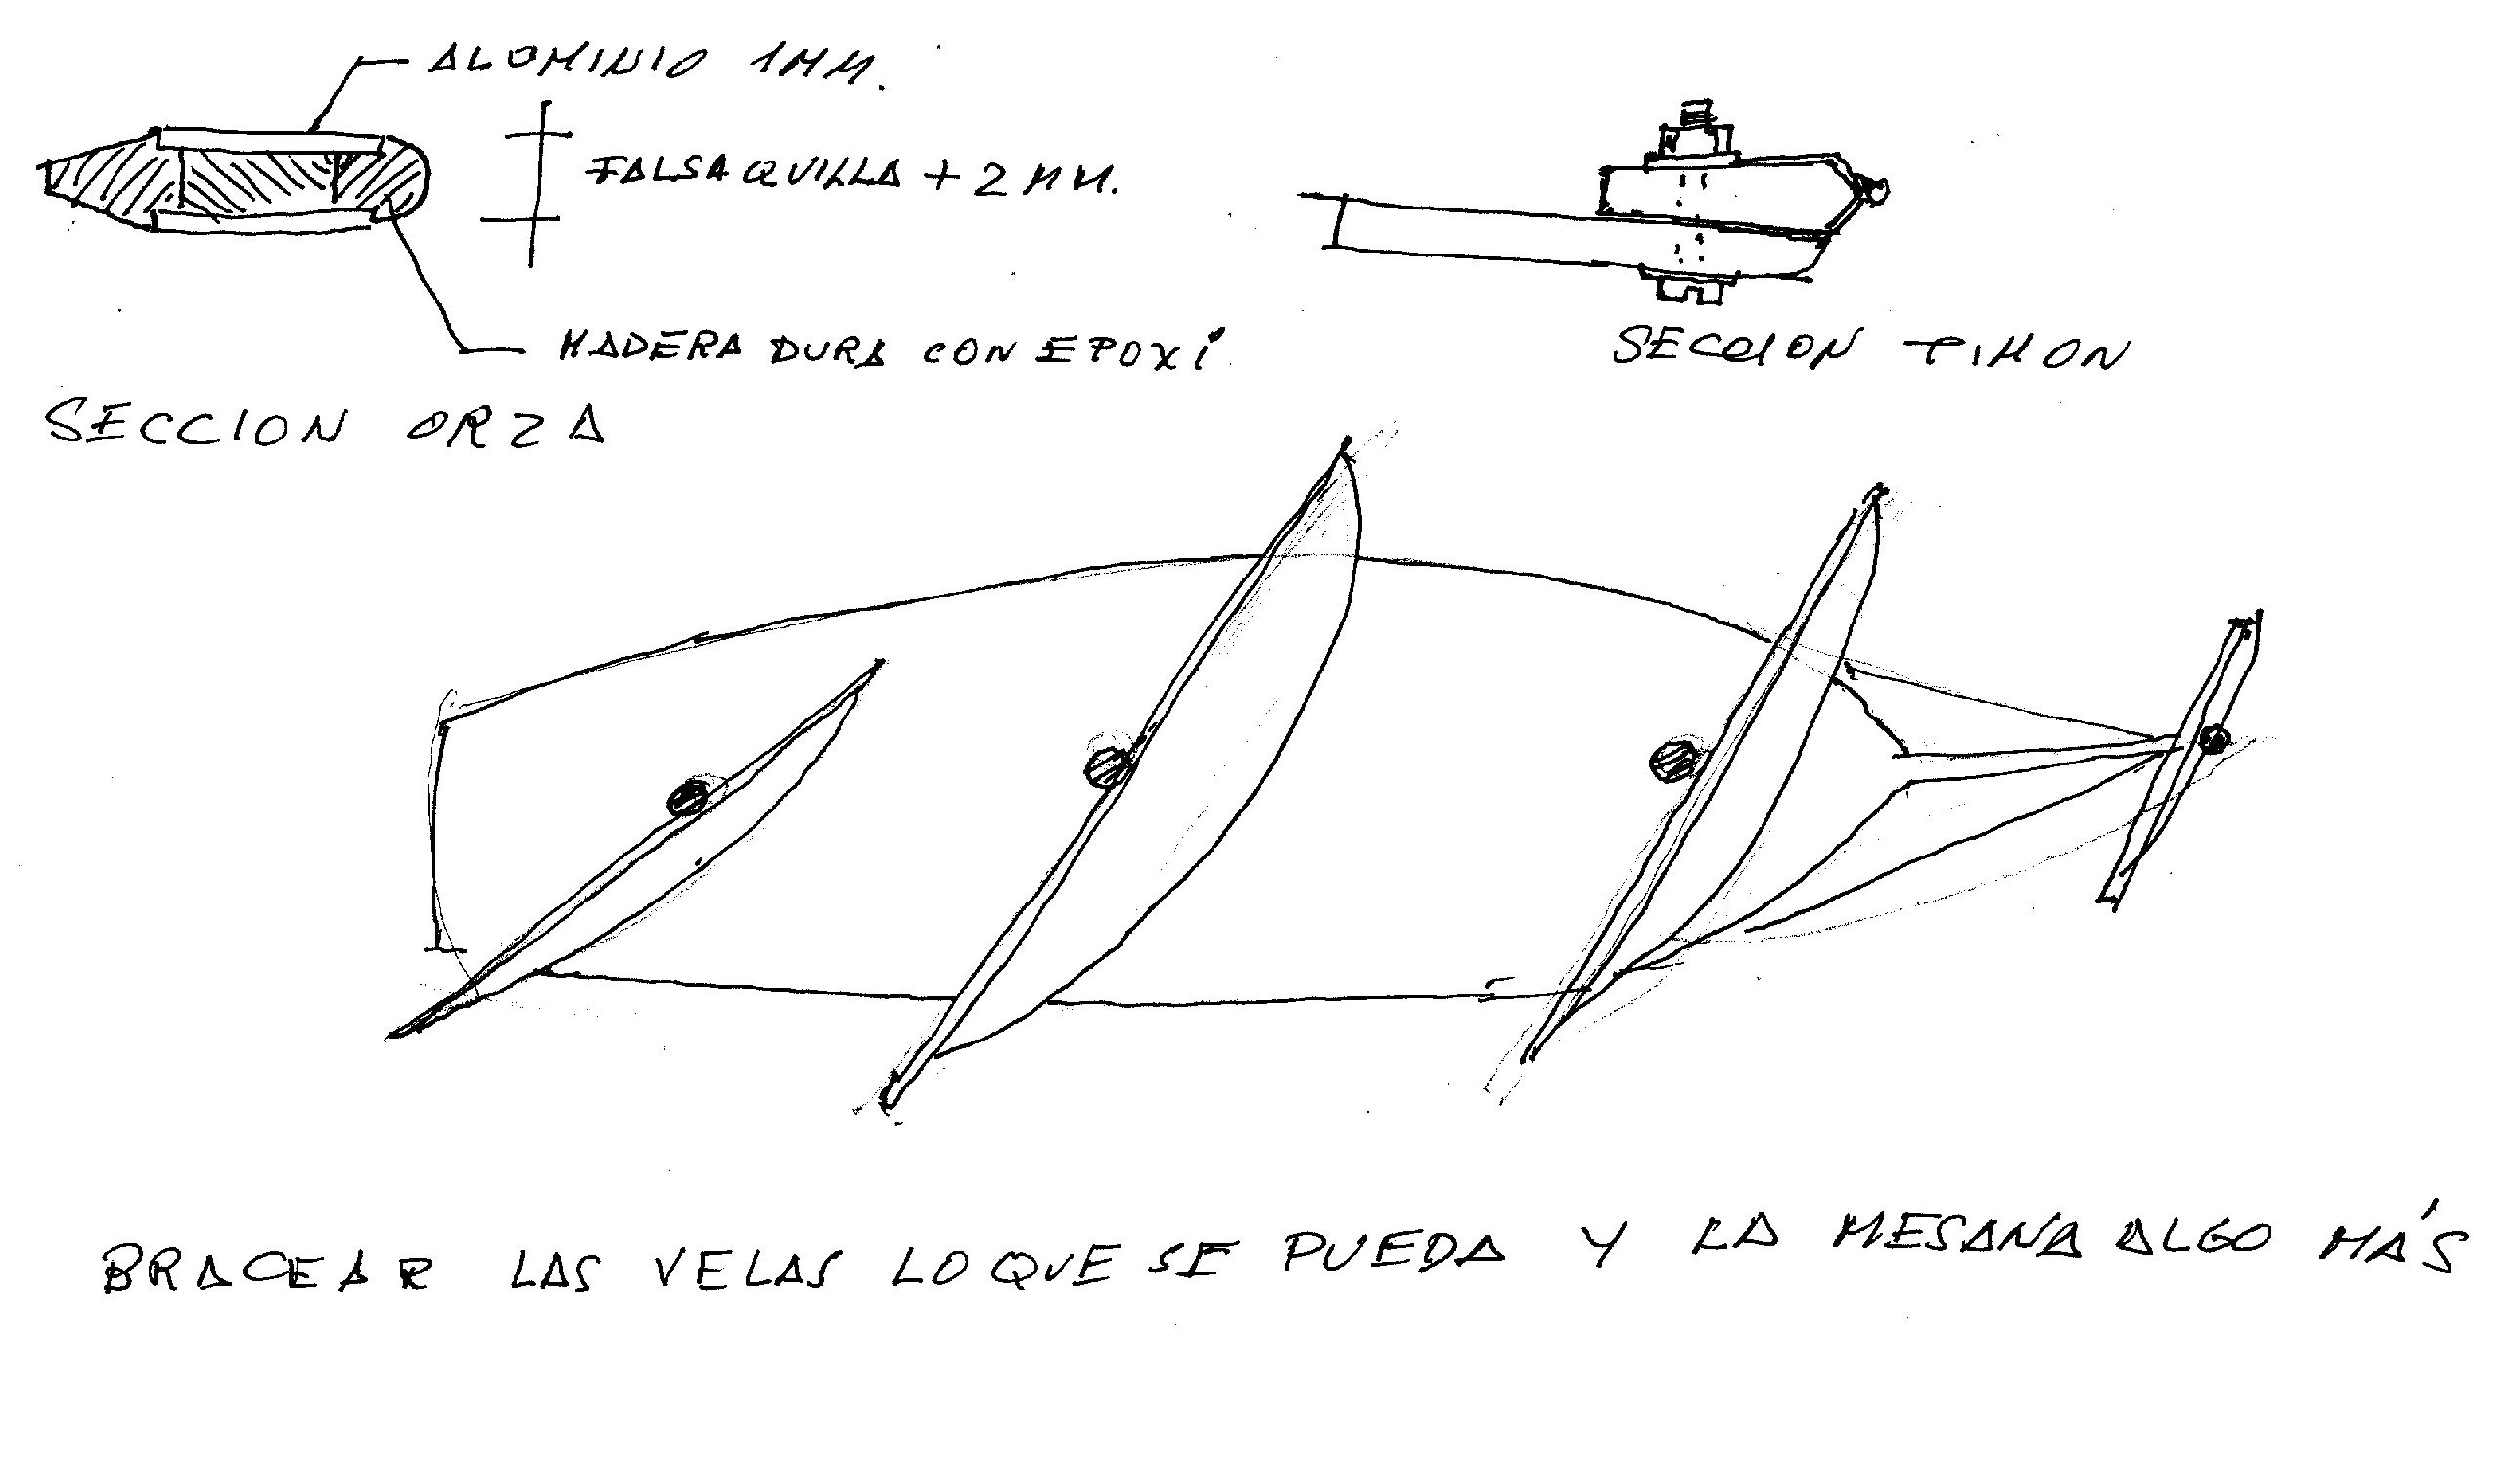 ALUMINIO 1MM.
FALSA QUILLA + 2 MM.
MADERA DURA CON EPOXÍ
SECCION TIMON
SECCION ORZA
BRACEAR LAS VELAS LO QUE SE PUEDA Y LA MESANA ALGO MÁS